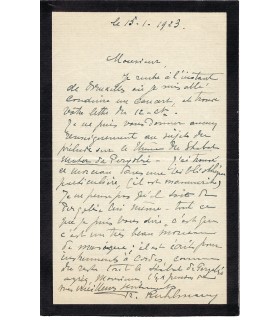 le 15-1-1923
Monsieur,
Je rentre à l'instant
de Bruxelles où je suis allé
conduire un concert, et trouve
votre lettre du 12-ct.
Je ne puis vous donner aucun
renseignement au sujet du
prélude sur le du Stabat
Mater de Pergolèse - J'ai trouvé
ce morceau dans une bibliothèque
particulière, (il est manuscrit)
Je ne pense pas qu'il soit de
Pergolèse lui même - tout ce
que je puis vous dire, c'est que
c'est un très beau morceau
de musique; il est écrit pour
instruments à cordes, comme
du reste tout le Stabat de Pergolèse
agréez, Monsieur, l'expression de
mes meilleurs sentiments
Ruhlmann